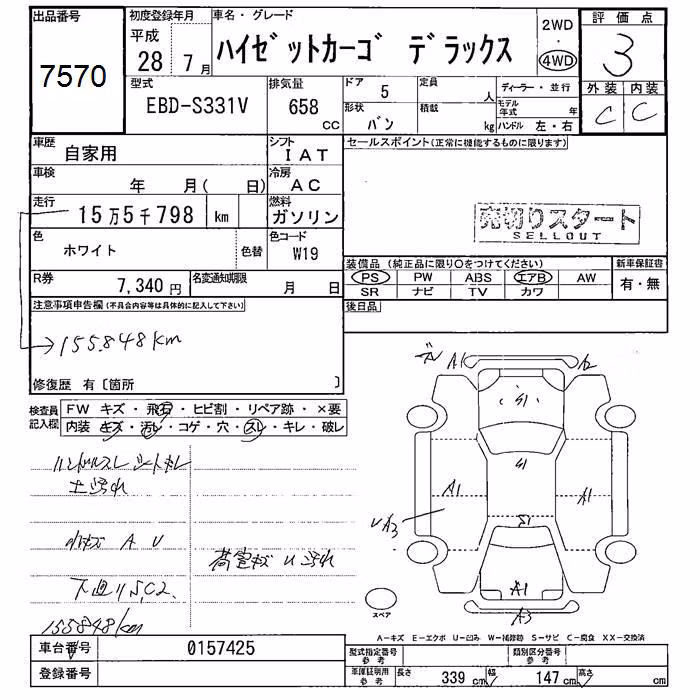 出品番号
7570
初度登録年月
平成
28年 7月
車名・グレード
ハイゼットカーゴ デラックス
2WD
4WD
評価点
3
外装 内装
C C
型式
EBD-S331V
排気量
658 cc
ドア 5
形状 バン
定員 人
積載 kg
ディーラー・並行
モデル年式 年
ハンドル 左・右
車歴
自家用
シフト
IAT
セールスポイント(正常に機能するものに限ります)
車検
年 月( 日)
冷房
AC
走行
15万5千798 km
燃料
ガソリン
売切りスタート
SELLOUT
色
ホワイト
色替
色コード
W19
装備品(純正品に限り○をつけてください)
新車保証書
PS PW ABS エアB AW
有・無
SR ナビ TV カワ
R券
7,340円
名変通知期限
月 日
後日品
注意事項申告欄(不具合内容等は具体的に記入して下さい)
155.848km
修復歴 有〔箇所 〕
検査員記入欄
FW キズ・飛石・ヒビ割・リペア跡・×要
内装 キズ・汚レ・コゲ・穴・スレ・キレ・破レ
ハンドルスレ シートキレ
土汚れ
小キズ A U
荷室キズ U 汚れ
下廻りS,C2.
155848km
ガ
A1
A2
S1
S1
A1
A1
UA3
S1
A1
A3
スペア
A-キズ E-エクボ U-凹み W-補修跡 S-サビ C-腐食 XX-交換済
車台番号
0157425
型式指定番号
参考
類別区分番号
参考
登録番号
車庫証明用
参考
長さ 339 cm
幅 147 cm
高さ cm